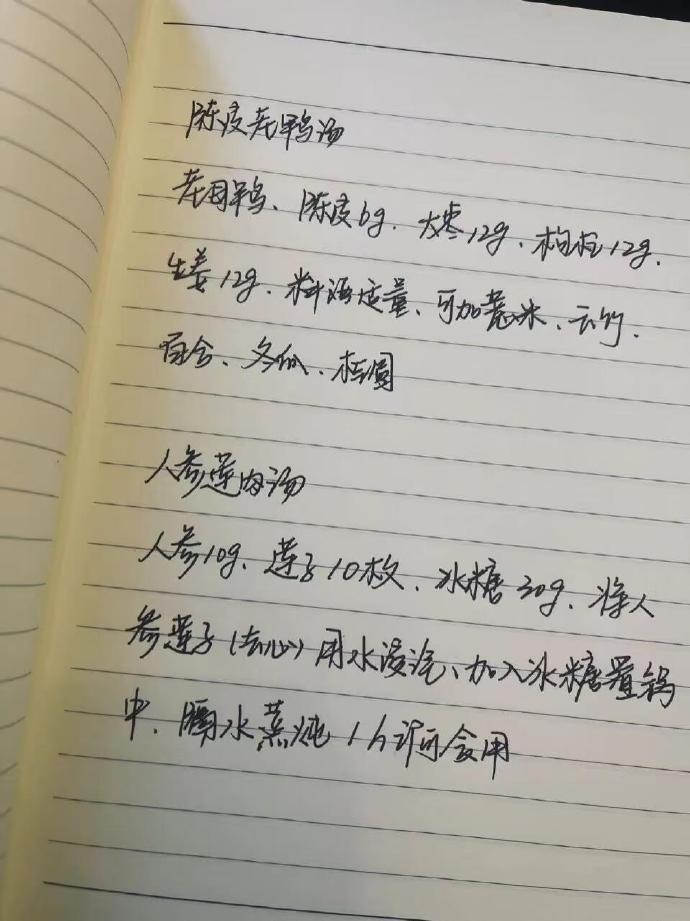 陈皮老鸭汤
老母鸭、陈皮6g、大枣12g、枸杞12g、
生姜12g、料酒适量、可加薏米、玉竹、
百合、冬瓜、桂圆
人参莲肉汤
人参10g、莲子10枚、冰糖30g、将人
参莲子(去心)用水浸泡、加入冰糖置锅
中、隔水蒸炖1h许可食用